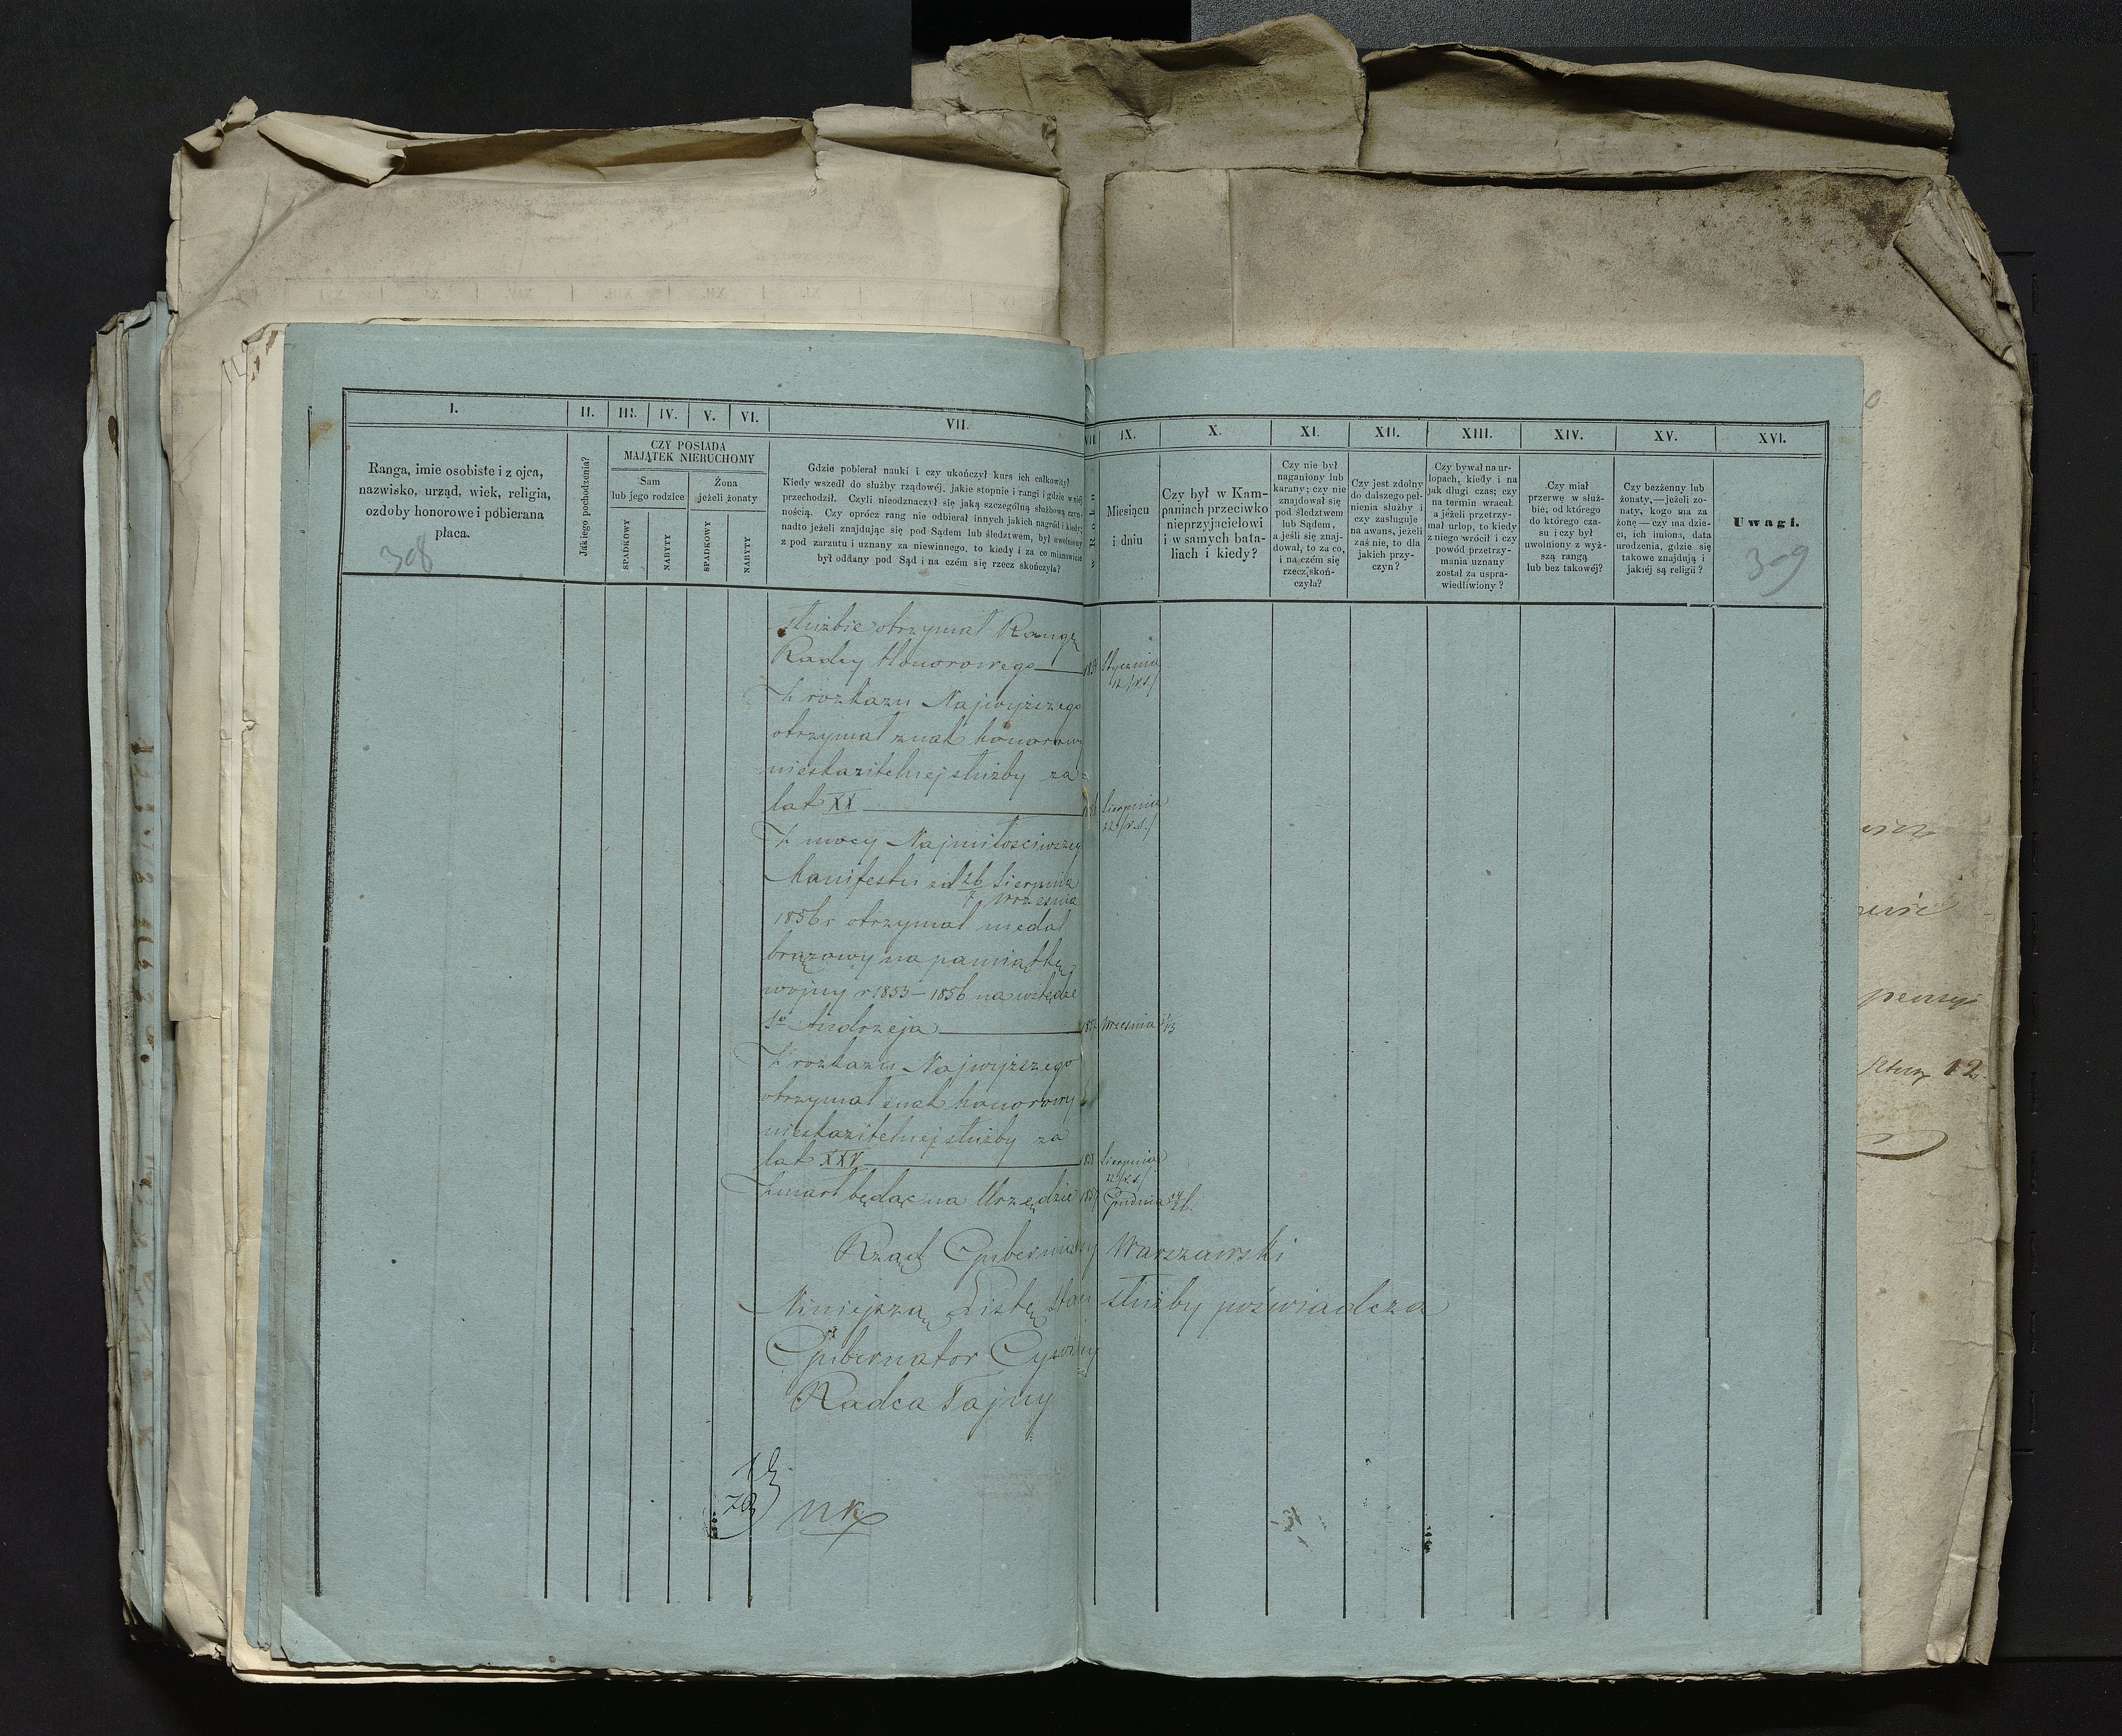 I.
II.
III.
IV.
V.
VI.
VII.
VIII
IX.
X.
XI.
XII.
XIII.
XIV.
XV.
XVI.
Ranga, imie osobiste i z ojca,
nazwisko, urząd, wiek, religia,
ozdoby honorowe i pobierana
płaca.
308
Jakiego pochodzenia?
CZY POSIADA
MAJĄTEK NIERUCHOMY
Sam
lub jego rodzice
Żona
jeżeli żonaty
SPADKOWY
NABYTY
SPADKOWY
NABYTY
Gdzie pobierał nauki i czy ukończył kurs ich całkowity?
Kiedy wszedł do służby rządowéj, jakie stopnie i rangi i gdzie w niéj
przechodził. Czyli nieodznaczył się jaką szczególną służbową czyn-
nością. Czy oprócz rang nie odbierał innych jakich nagród i kiedy;
nadto jeżeli znajdując się pod Sądem lub śledztwem, był uwolniony
z pod zarzutu i uznany za niewinnego, to kiedy i za co mianowicie
był oddany pod Sąd i na czém się rzecz skończyła?
Miesiącu
i dniu
Czy był w Kam-
paniach przeciwko
nieprzyjacielowi
i w samych bata-
liach i kiedy?
Czy nie był
naganiony lub
karany; czy nie
znajdował się
pod śledztwem
lub Sądem,
a jeśli się znaj-
dował, to za co,
i na czém się
rzecz skoń-
czyła?
Czy jest zdolny
do dalszego peł-
nienia służby i
czy zasługuje
na awans, jeżeli
zaś nie, to dla
jakich przy-
czyn?
Czy bywał na ur-
lopach, kiedy i na
jak długi czas; czy
na termin wracał
a jeżeli przetrzy-
mał urlop, to kiedy
z niego wrócił i czy
powód przetrzy-
mania uznany
został za uspra-
wiedliwiony?
Czy miał
przerwę w służ-
bie, od którego
do którego cza-
su i czy był
uwolniony z wyż-
szą rangą
lub bez takowéj?
Czy bezżenny lub
żonaty,—jeżeli żo-
naty, kogo ma za
żonę—czy ma dzie-
ci, ich imiona, data
urodzenia, gdzie się
takowe znajdują i
jakiéj są religii?
Uwagi.
309
służbie otrzymał Rangę
Radcy Honorowego
Stycznia
12 /v.s./
Z rozkazu Najwyższego
otrzymał znak honorowy
nieskazitelnej służby za
lat XX
Sierpnia
22 /v.s./
Z mocy Najmiłościwszego
Manifestu z d 26 Sierpnia
7 Września
1856 r otrzymał medal
brązowy na pamiątkę
wojny r 1853—1856 na wstędze
Sgo Andrzeja
Września 1/13
Z rozkazu Najwyższego
otrzymał znak honorowy
nieskazitelnej służby za
lat XXV
Sierpnia
22 /v.s./
Zmarł będąc na Urzędzie
Grudnia 14/26.
Rząd Gubernialny Warszawski
Niniejszą Listę Stanu służby poświadcza
Gubernator Cywilny
Radca Tajny
pensyi
12